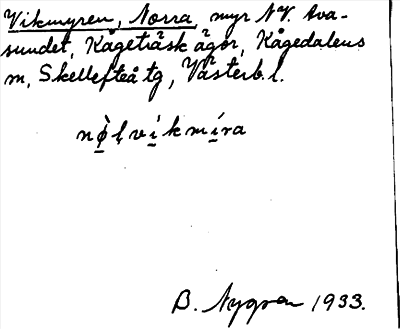 Vikmyren, Norra, myr NV. Ava-
sundet, Kågeträsk ägor, Kågedalens
m, Skellefteå tg, Västerb. l.
nø̀ḷvíkmíra
B. Nygren 1933.